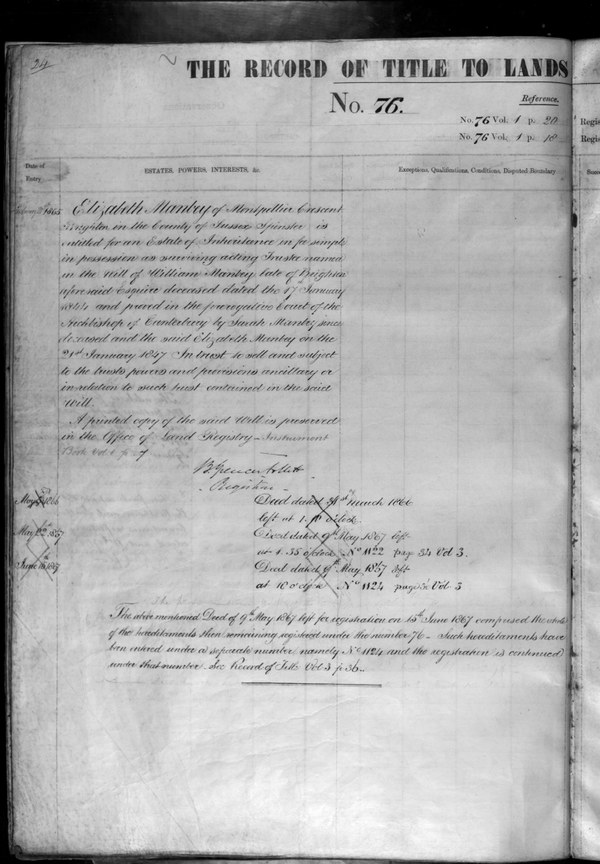 24
THE RECORD OF TITLE TO LANDS
No. 76.
Reference.
No. 76 Vol. 1 p. 20
No. 76 Vol. 1 p. 18
Regis
Regis
Date of
Entry
ESTATES, POWERS, INTERESTS, &c.
Exceptions, Qualifications, Conditions, Disputed Boundary
1865 Elizabeth Manbey of Montpellier Crescent
Brighton in the County of Sussex Spinster is
entitled for an Estate of Inheritance in fee simple
in possession as surviving acting Trustee named
in the Will of William Manbey late of Brighton
aforesaid Esquire deceased dated the 17th January
1844 and proved in the prerogative Court of the
Archbishop of Canterbury by Sarah Manbey since
deceased and the said Elizabeth Manbey on the
21st January 1847 In trust to sell and subject
to the trusts powers and provisions ancillary or
in relation to such trust contained in the said
Will.
A printed copy of the said Will is preserved
in the Office of Land Registry - Instrument
Book Vol 1 p
Registrar
May 1866 Deed dated 31st March 1866
left at 1. o'clock.
May 22nd 1867 Deed dated 9th May 1867 left
at 1.55 o'clock No 1122 page 34 Vol 3.
June 15th 1867 Deed dated 9th May 1867 left
at 10 o'clock No 1124 page 36 Vol 3
The above mentioned Deed of 9th May 1867 left for registration on 15th June 1867 comprised the whole
of the hereditaments then remaining registered under the number 76 - Such hereditaments have
been entered under a separate number namely No 1124 and the registration is continued
under that number. See Record of Title Vol 3 p 36.